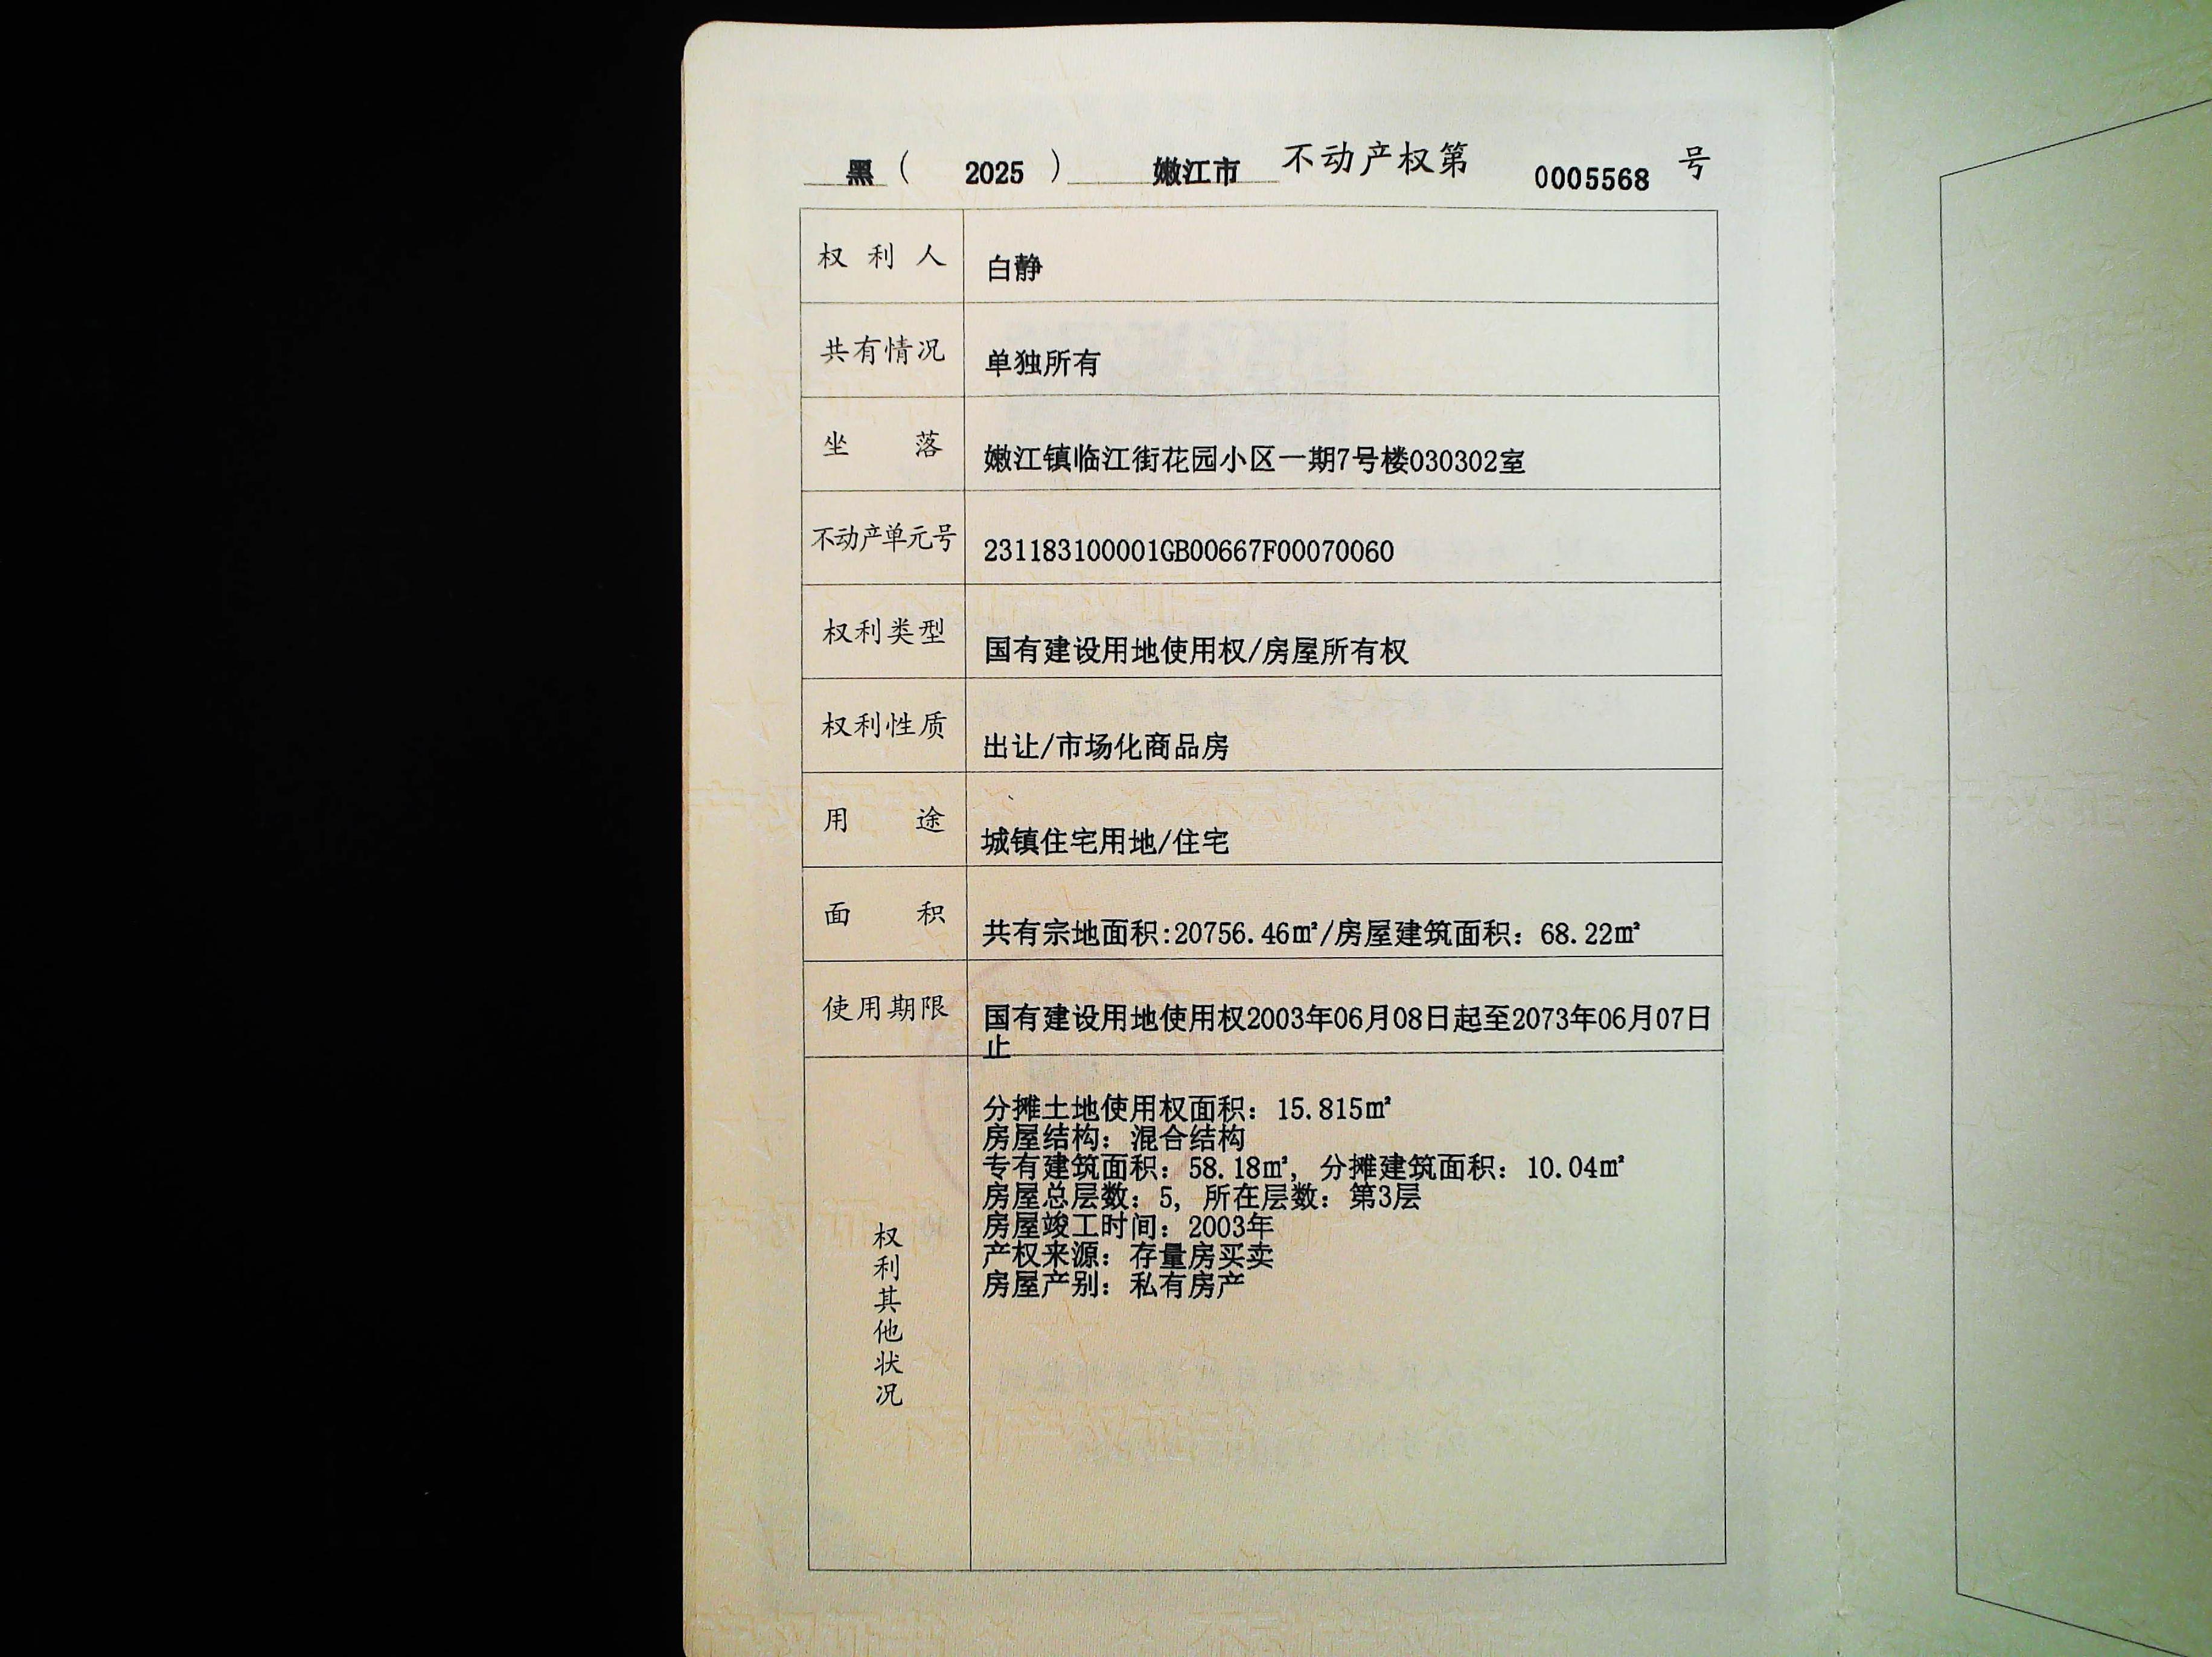 黑（ 2025 ） 嫩江市 不动产权第 0005568 号
权利人 白静
共有情况 单独所有
坐落 嫩江镇临江街花园小区一期7号楼030302室
不动产单元号 231183100001GB00667F00070060
权利类型 国有建设用地使用权/房屋所有权
权利性质 出让/市场化商品房
用途 城镇住宅用地/住宅
面积 共有宗地面积:20756.46㎡/房屋建筑面积：68.22㎡
使用期限 国有建设用地使用权2003年06月08日起至2073年06月07日
止
权利其他状况
分摊土地使用权面积：15.815㎡
房屋结构：混合结构
专有建筑面积：58.18㎡，分摊建筑面积：10.04㎡
房屋总层数：5，所在层数：第3层
房屋竣工时间：2003年
产权来源：存量房买卖
房屋产别：私有房产